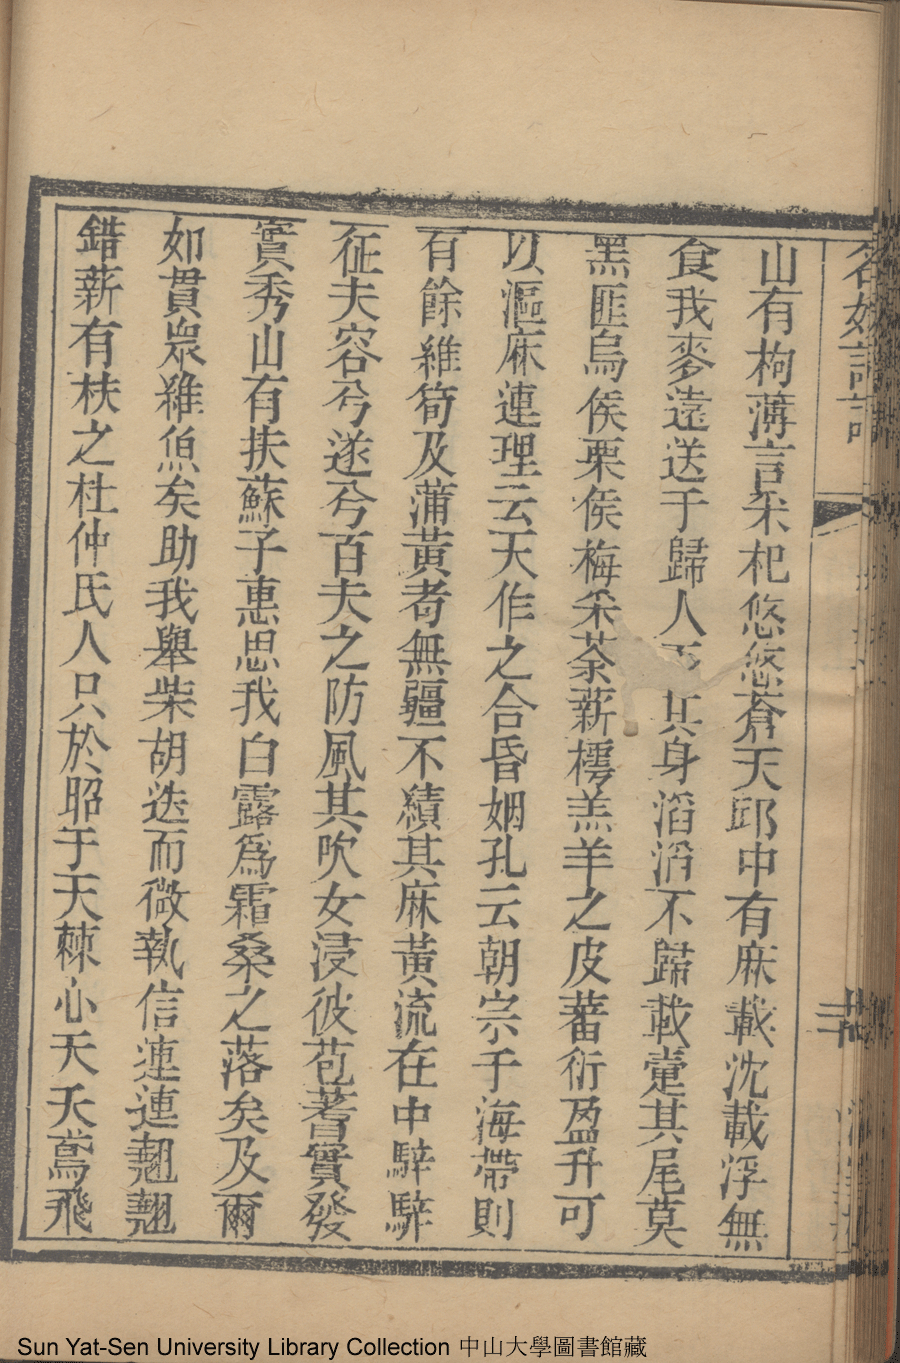 山有枸薄言采杞悠悠蒼天邱中有麻載沈載浮無
食我麥遠送于歸人百其身滔滔不歸載疐其尾莫
黑匪烏侯栗侯梅采荼薪樗羔羊之皮蕃衍盈升可
以漚麻連理云天作之合昏姻孔云朝宗于海帶則
有餘維筍及蒲黃耇無疆不績其麻黃流在中騂騂
征夫容兮遂兮百夫之防風其吹女浸彼苞蓍實發
實秀山有扶蘇子惠思我白露爲霜桑之落矣及爾
如貫衆維魚矣助我舉柴胡迭而微執信連連翹翹
錯薪有杕之杜仲氏人只於昭于天棘心天夭鳶飛
Sun Yat-Sen University Library Collection 中山大學圖書館藏